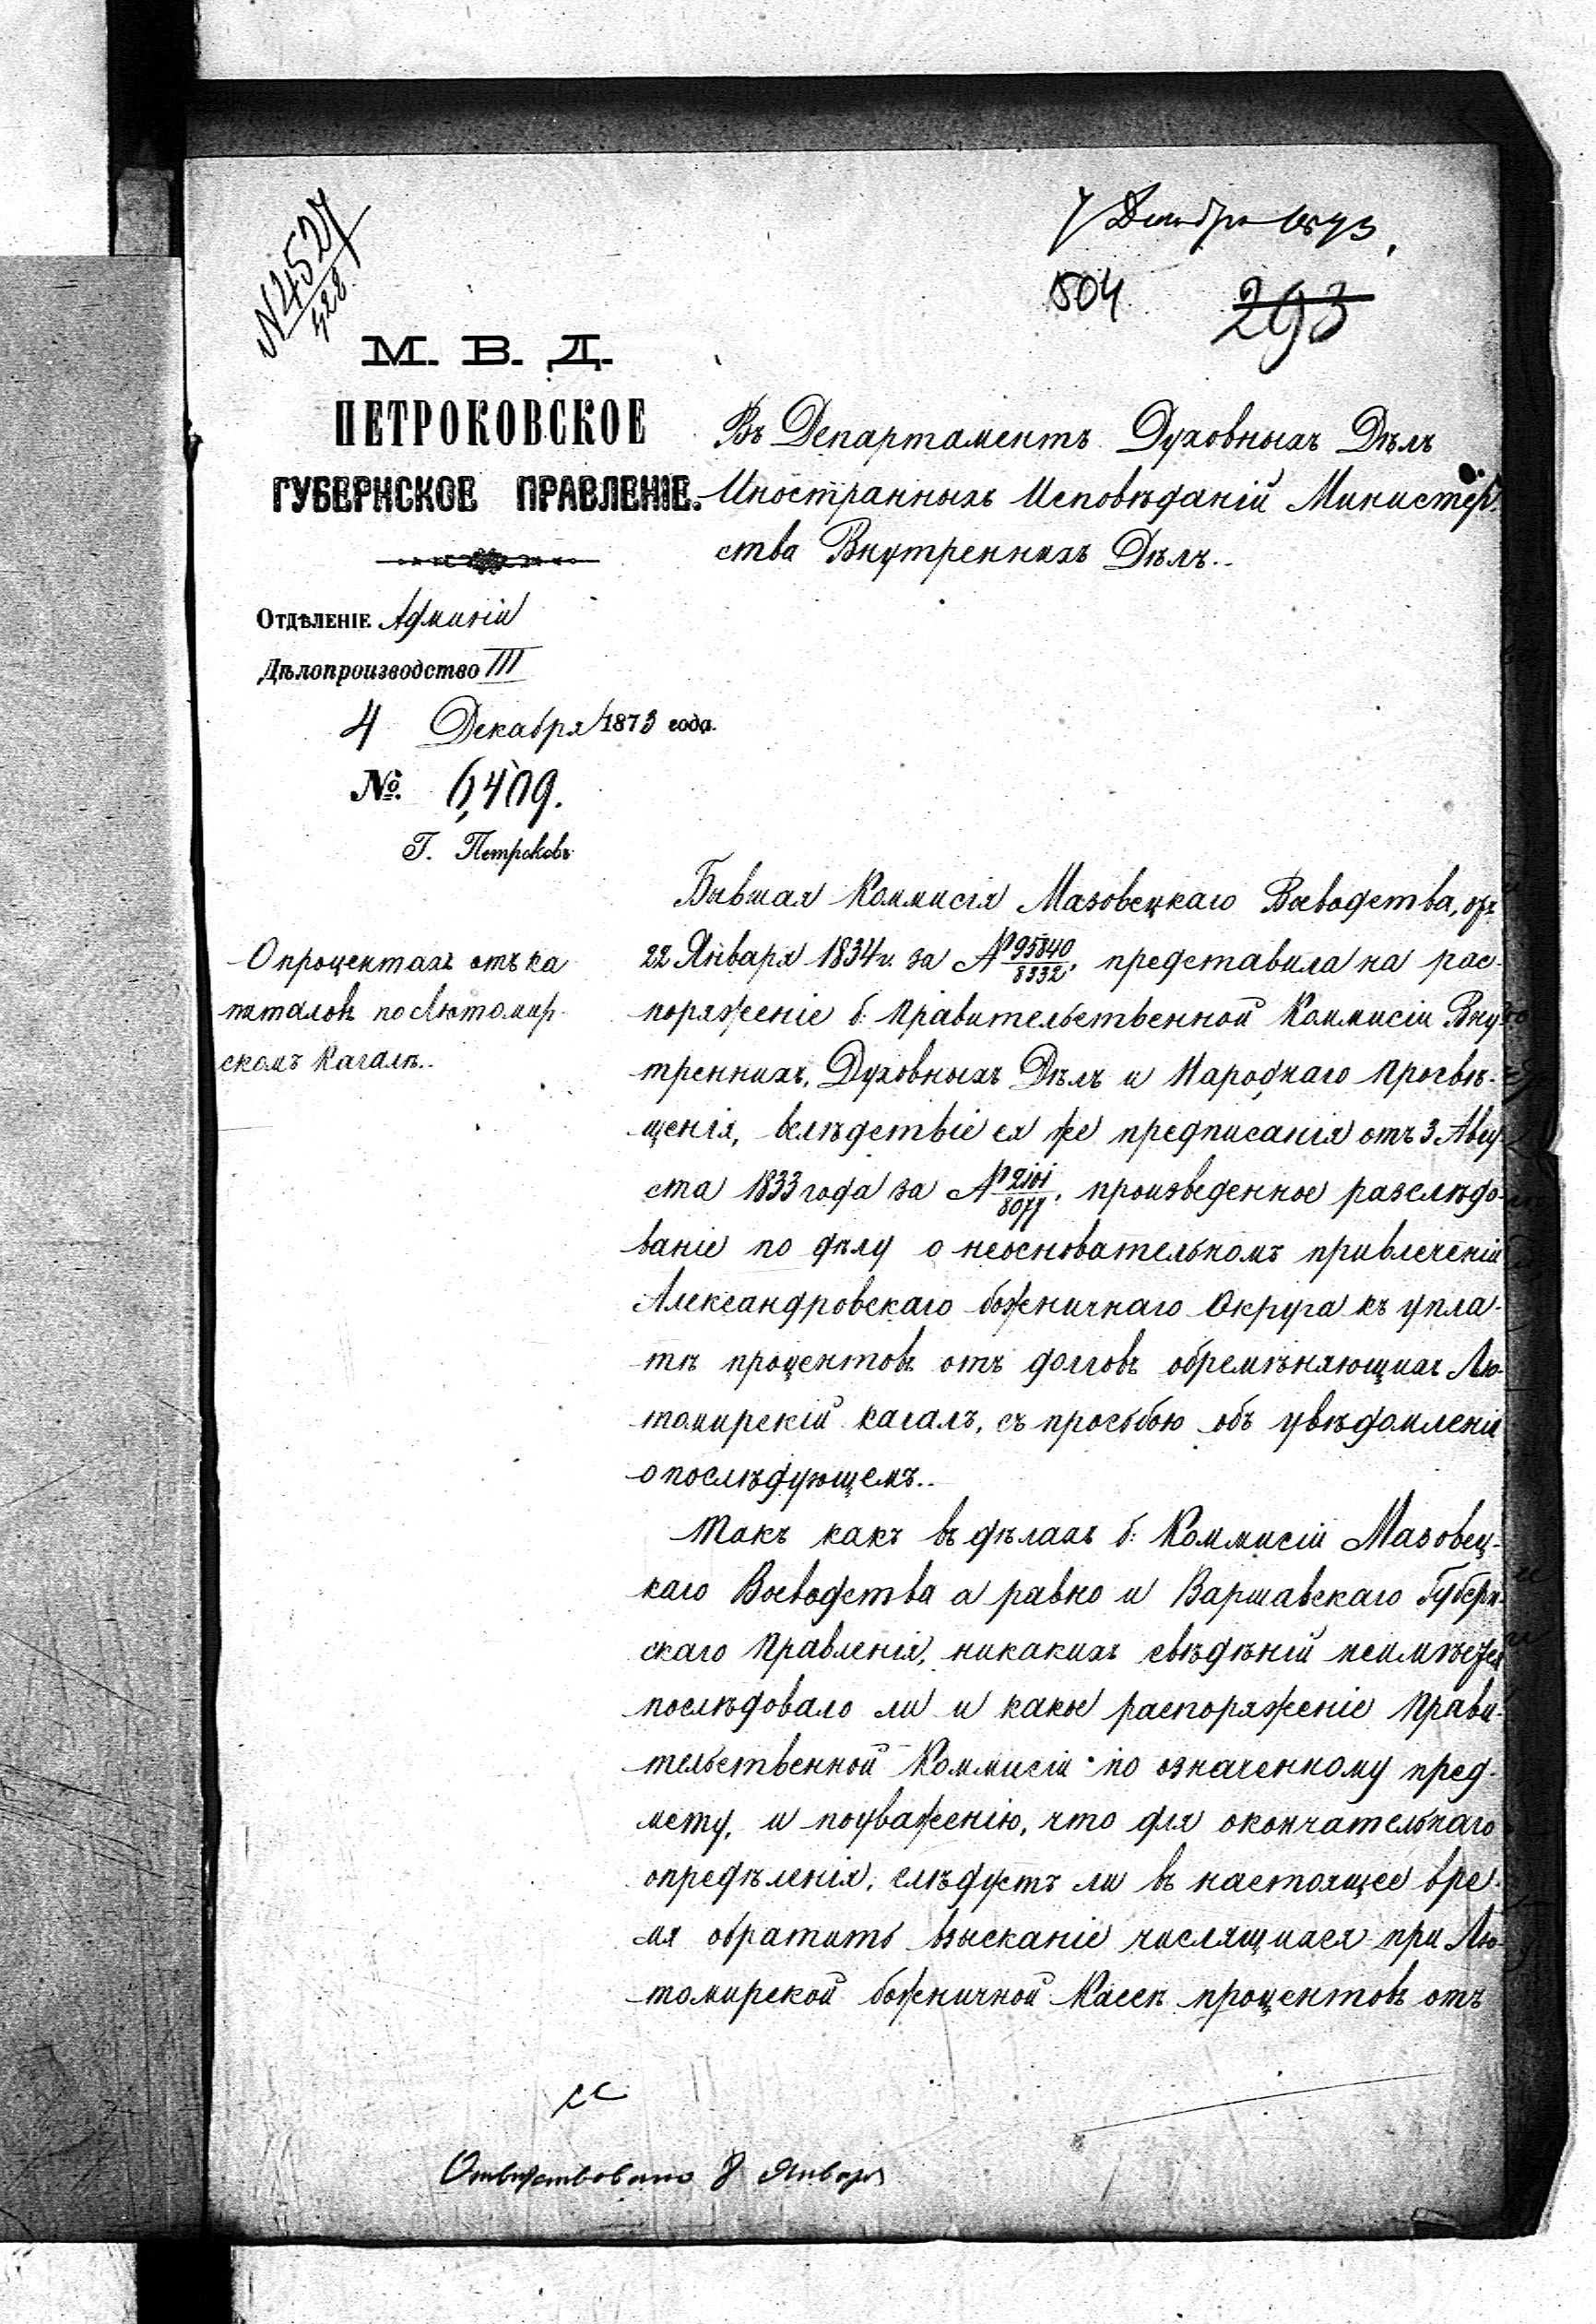 № 4527
428.
7 Декабря 1873.
504
293
М. В. Д.
ПЕТРОКОВСКОЕ
ГУБЕРНСКОЕ ПРАВЛЕНІЕ.
Отдѣленіе Админіи
Дѣлопроизводство III
4 Декабря 1873 года.
№ 6,409.
Г. Петроковъ
О процентахъ отъ ка
питаловъ по Лютомир-
скомъ Кагалѣ..
Въ Департаментъ Духовныхъ Дѣлъ
Иностранныхъ Исповѣданій Министер-
ства Внутреннихъ Дѣлъ..
Бывшая Коммисія Мазовецкаго Воеводства, отъ
22 Января 1834 г. за № 95840/8332, представила на рас-
поряженіе б. Правительственной Коммисіи Вну
треннихъ, Духовныхъ Дѣлъ и Народнаго Просвѣ-
щенія, вслѣдствіе ея же предписанія отъ 3 Авгу
ста 1833 года за № 2101/8077, произведенное разслѣдо-
ваніе по дѣлу о неосновательномъ привлеченіи
Александровскаго божничнаго Округа къ упла-
тѣ процентовъ отъ долговъ обремѣняющихъ Лю-
томирскій кагалъ, съ просьбою объ увѣдомленіи
о послѣдующемъ..
Такъ какъ въ дѣлахъ б. Коммисіи Мазовец-
каго Воеводства а равно и Варшавскаго Губерн-
скаго Правленія, никакихъ свѣдѣній неимѣется
послѣдовало ли и какое распоряженіе Прави-
тельственной Коммисіи по означенному пред-
мету, и поуваженію, что для окончательнаго
опредѣленія, слѣдуетъ ли въ настоящее вре-
мя обратить взысканіе числящихся при Лю-
томирской божничной Кассѣ процентовъ отъ
Отвѣтствовано 8 Января